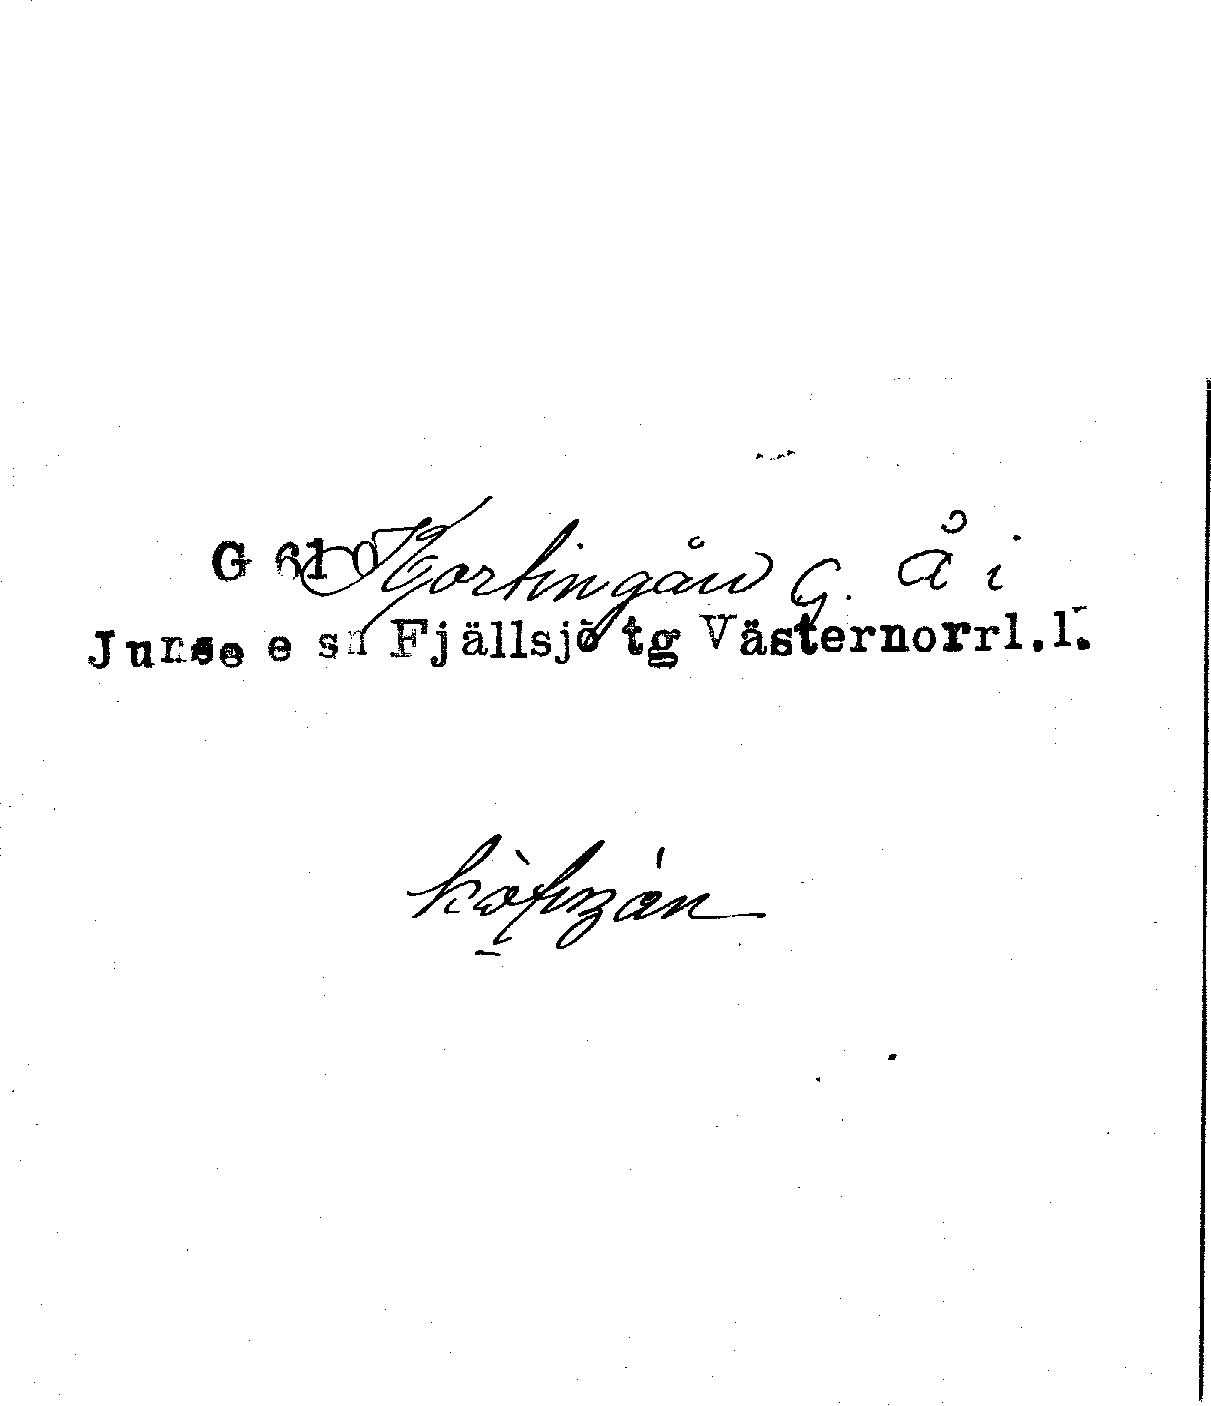 G 610 Kortingån G. Å i
Junsele sn Fjällsjö tg Västernorrl.l.